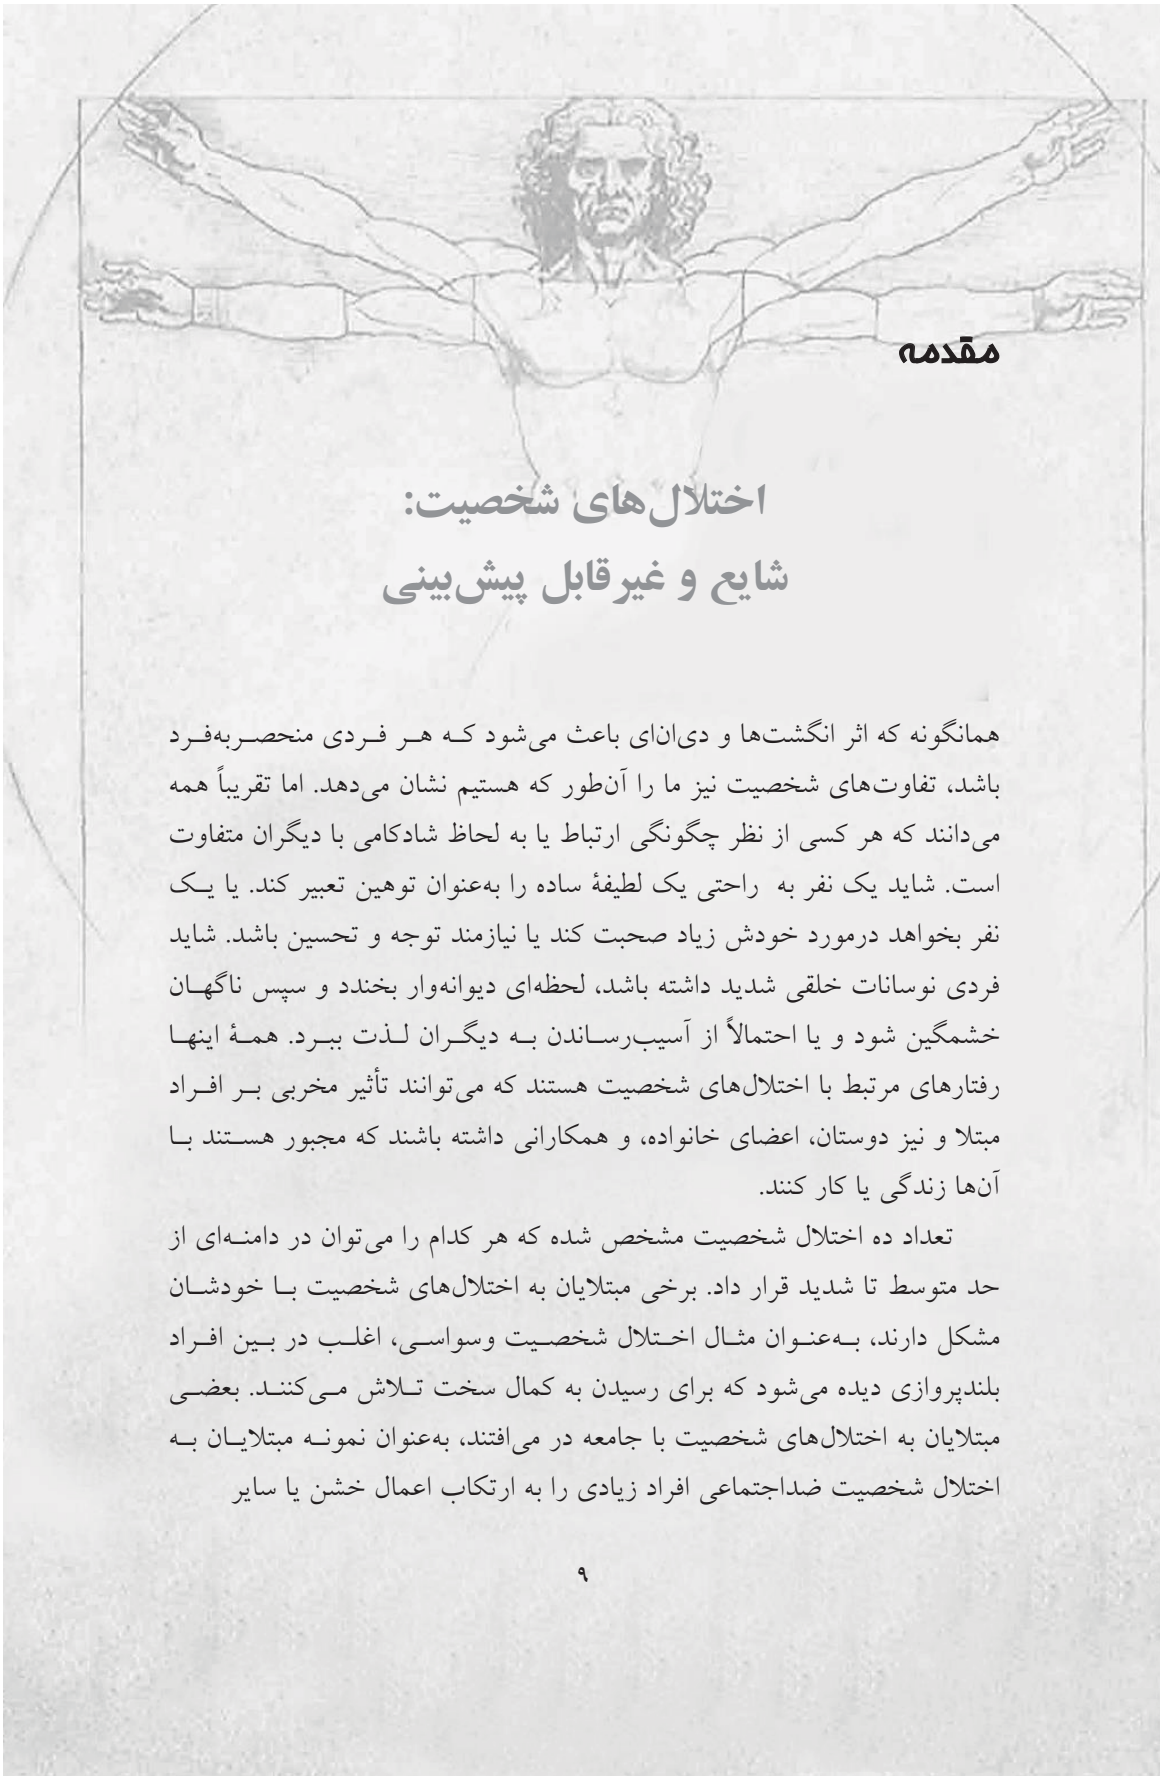 مقدمه
اختلال‌های شخصیت:
شایع و غیرقابل پیش‌بینی
همانگونه که اثر انگشت‌ها و دی‌ان‌ای باعث می‌شود کـه هـر فـردی منحصـربه‌فـرد
باشد، تفاوت‌های شخصیت نیز ما را آن‌طور که هستیم نشان می‌دهد. اما تقریباً همه
می‌دانند که هر کسی از نظر چگونگی ارتباط یا به لحاظ شادکامی با دیگران متفاوت
است. شاید یک نفر به راحتی یک لطیفهٔ ساده را به‌عنوان توهین تعبیر کند. یا یـک
نفر بخواهد درمورد خودش زیاد صحبت کند یا نیازمند توجه و تحسین باشد. شاید
فردی نوسانات خلقی شدید داشته باشد، لحظه‌ای دیوانه‌وار بخندد و سپس ناگهـان
خشمگین شود و یا احتمالاً از آسیب‌رسـاندن بـه دیگـران لـذت ببـرد. همـهٔ اینهـا
رفتارهای مرتبط با اختلال‌های شخصیت هستند که می‌توانند تأثیر مخربی بـر افـراد
مبتلا و نیز دوستان، اعضای خانواده، و همکارانی داشته باشند که مجبور هسـتند بـا
آن‌ها زندگی یا کار کنند.
تعداد ده اختلال شخصیت مشخص شده که هر کدام را می‌توان در دامنـه‌ای از
حد متوسط تا شدید قرار داد. برخی مبتلایان به اختلال‌های شخصیت بـا خودشـان
مشکل دارند، بـه‌عنـوان مثـال اخـتلال شخصـیت وسواسـی، اغلـب در بـین افـراد
بلندپروازی دیده می‌شود که برای رسیدن به کمال سخت تـلاش مـی‌کننـد. بعضـی
مبتلایان به اختلال‌های شخصیت با جامعه در می‌افتند، به‌عنوان نمونـه مبتلایـان بـه
اختلال شخصیت ضداجتماعی افراد زیادی را به ارتکاب اعمال خشن یا سایر
۹